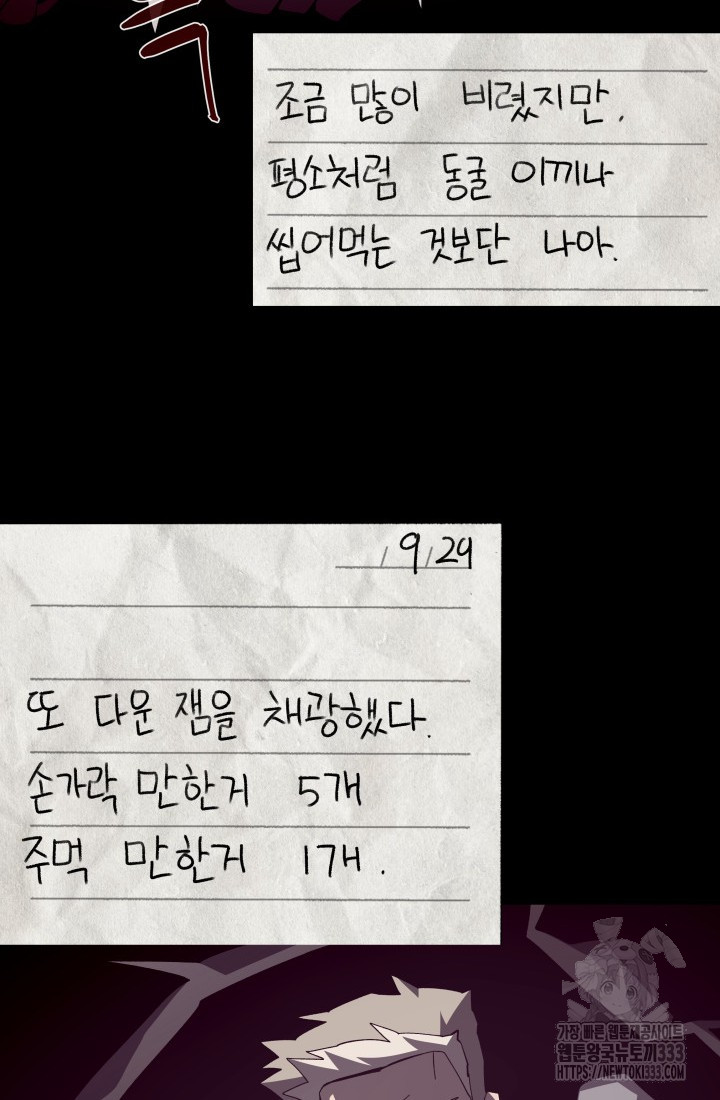 조금 많이 비렸지만.
평소처럼 동굴 이끼나
씹어먹는 것보단 나아.
/9/29
또 다운 잼을 채광했다.
손가락 만한거 5개
주먹 만한거 1개.
가장 빠른 웹툰제공사이트
웹툰왕국뉴토끼333
HTTPS://NEWTOKI333.COM